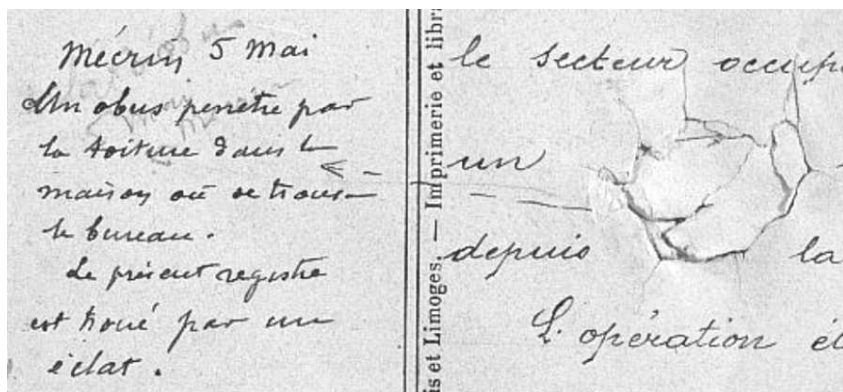 Mécrin 5 Mai
Un obus penètre par
la toiture dans le
maison où se trouve
le bureau.
Le présent registre
est troué par un
éclat.
is et Limoges. — Imprimerie et libra
le secteur occup
un
depuis la
L'opération ét